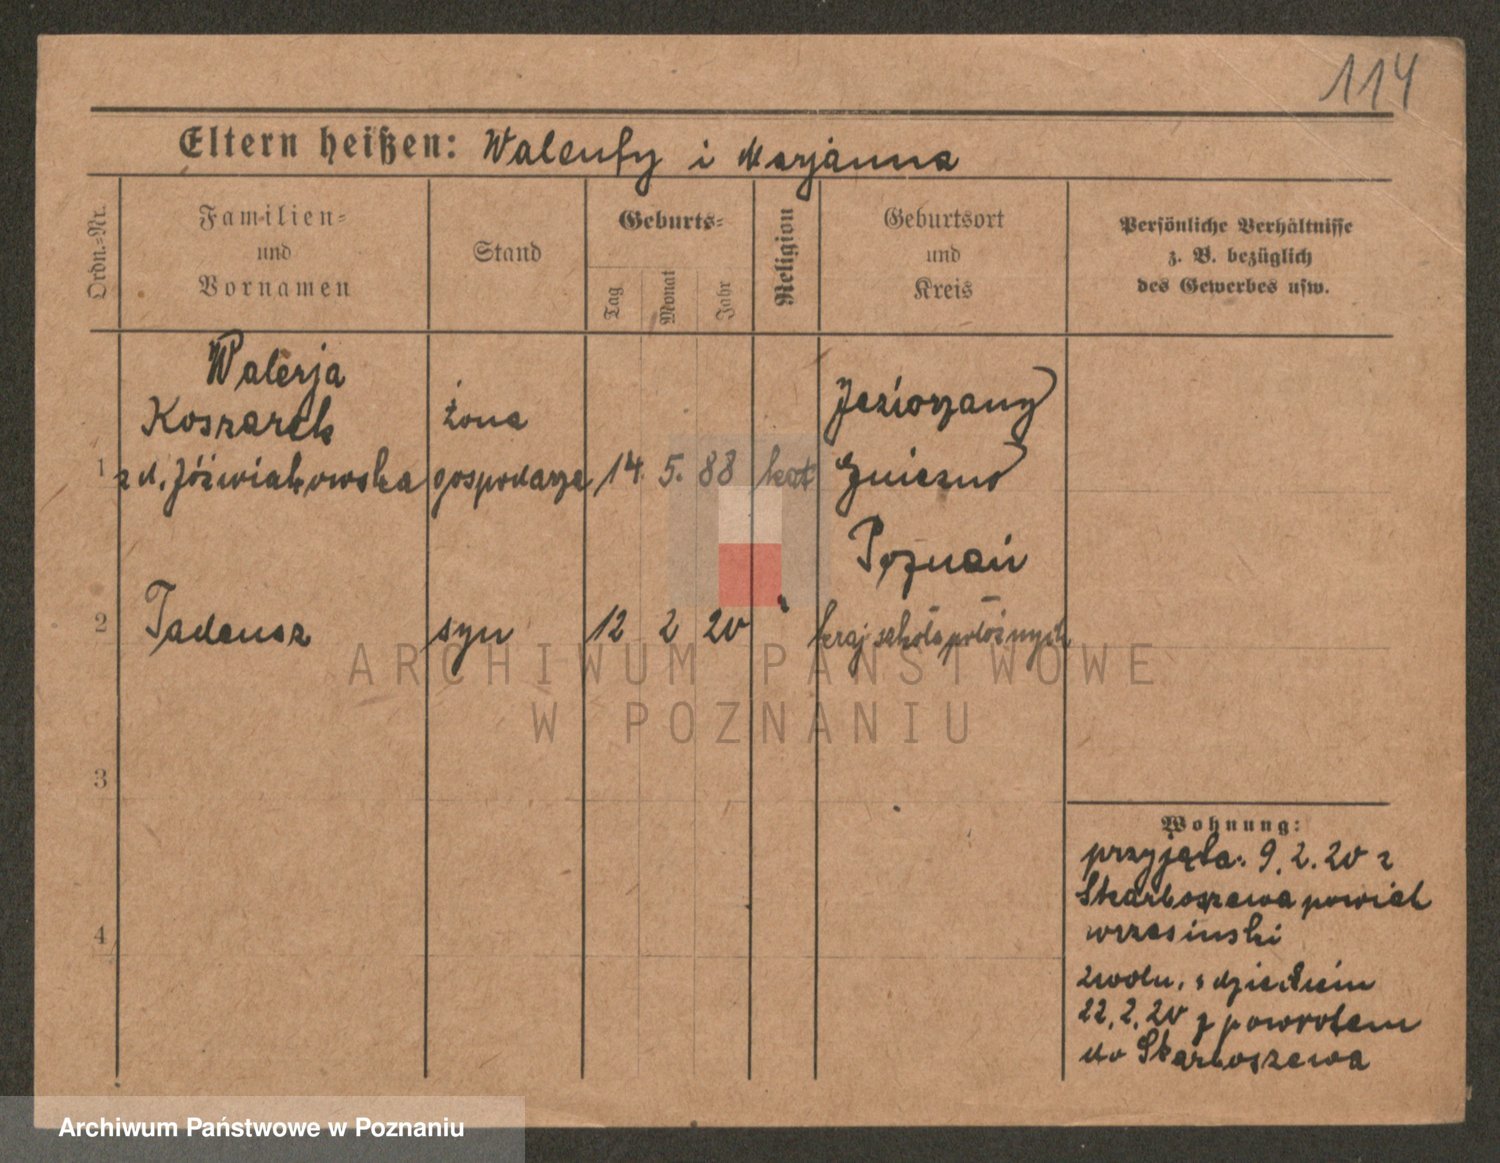 114
Eltern heißen: Walenty i Marjanna
Ordn.-Nr.
Familien-
und
Vornamen
Stand
Geburts-
Tag
Monat
Jahr
Religion
Geburtsort
und
Kreis
Persönliche Verhältnisse
z. B. bezüglich
des Gewerbes usw.
Walerja
Koszarek
1 z d. Jóźwiakowska
żona
gospodarza
14. 5. 88
kat
Jeziorzany
Gniezno
2 Tadeusz
syn
12 2 20
"
Poznań
kraj szkoła położnych
3
4
Wohnung:
przyjęta: 9. 2. 20 z
Skarboszewa powiat
wrzesiński
zwoln. z dzieckiem
22. 2. 20 z powrotem
do Skarboszewa
ARCHIWUM PAŃSTWOWE
W POZNANIU
Archiwum Państwowe w Poznaniu